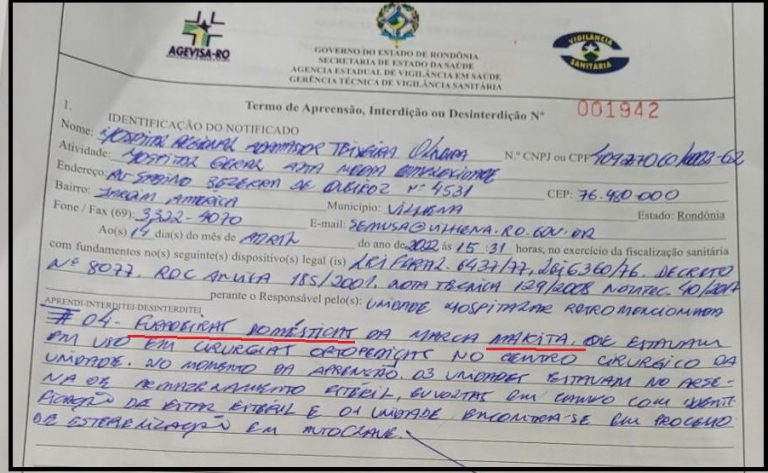 AGEVISA-RO
VIGILÂNCIA
SANITÁRIA
GOVERNO DO ESTADO DE RONDÔNIA
SECRETARIA DE ESTADO DA SAÚDE
AGENCIA ESTADUAL DE VIGILÂNCIA EM SAÚDE
GERÊNCIA TÉCNICA DE VIGILÂNCIA SANITÁRIA
Termo de Apreensão, Interdição ou Desinterdição Nº 001942
1. IDENTIFICAÇÃO DO NOTIFICADO
Nome: HOSPITAL REGIONAL ADAMASTOR TEIXEIRA OLIVEIRA N.º CNPJ ou CPF
Atividade: HOSPITAL GERAL ALTA MEDIA COMPLEXIDADE
Endereço: AV SABINO BEZERRA DE QUEIROZ Nº 4531 CEP: 76.980-000
Bairro: JARDIM AMERICA Município: VILHENA Estado: Rondônia
Fone / Fax (69): 3322-4070 E-mail: SEMUSA@VILHENA.RO.GOV.BR
Ao(s) 14 dia(s) do mês de ABRIL do ano de 2022 às 15:31 horas, no exercício da fiscalização sanitária
com fundamentos no(s) seguinte(s) dispositivo(s) legal (is) LEI FEDERAL 6437/77, LEI 6360/76. DECRETO
Nº 8077, RDC ANVISA 185/2001. NOTA TECNICA 129/2008 NOTA TEC. 40/2017
perante o Responsável pelo(s): UNIDADE HOSPITALAR RETROMENCIONADA
APRENDI-INTERDITEI-DESINTERDITEI
# 04 - FURADEIRAS DOMÉSTICAS DA MARCA MAKITA, QUE ESTAVAM
EM USO EM CIRURGIAS ORTOPEDICAS NO CENTRO CIRURGICO DA
UNIDADE. NO MOMENTO DA APREENÇÃO. 03 UNIDADES ESTAVAM NO ARSE-
NAL DE ARMAZENAMENTO ESTÉRIL, ENVOLTAS EM CAMPO COM IDENTI-
FICAÇÃO DE ESTAR ESTÉRIL E 01 UNIDADE ENCONTRA-SE EM PROCESSO
DE ESTERELIZAÇÃO EM AUTOCLAVE.